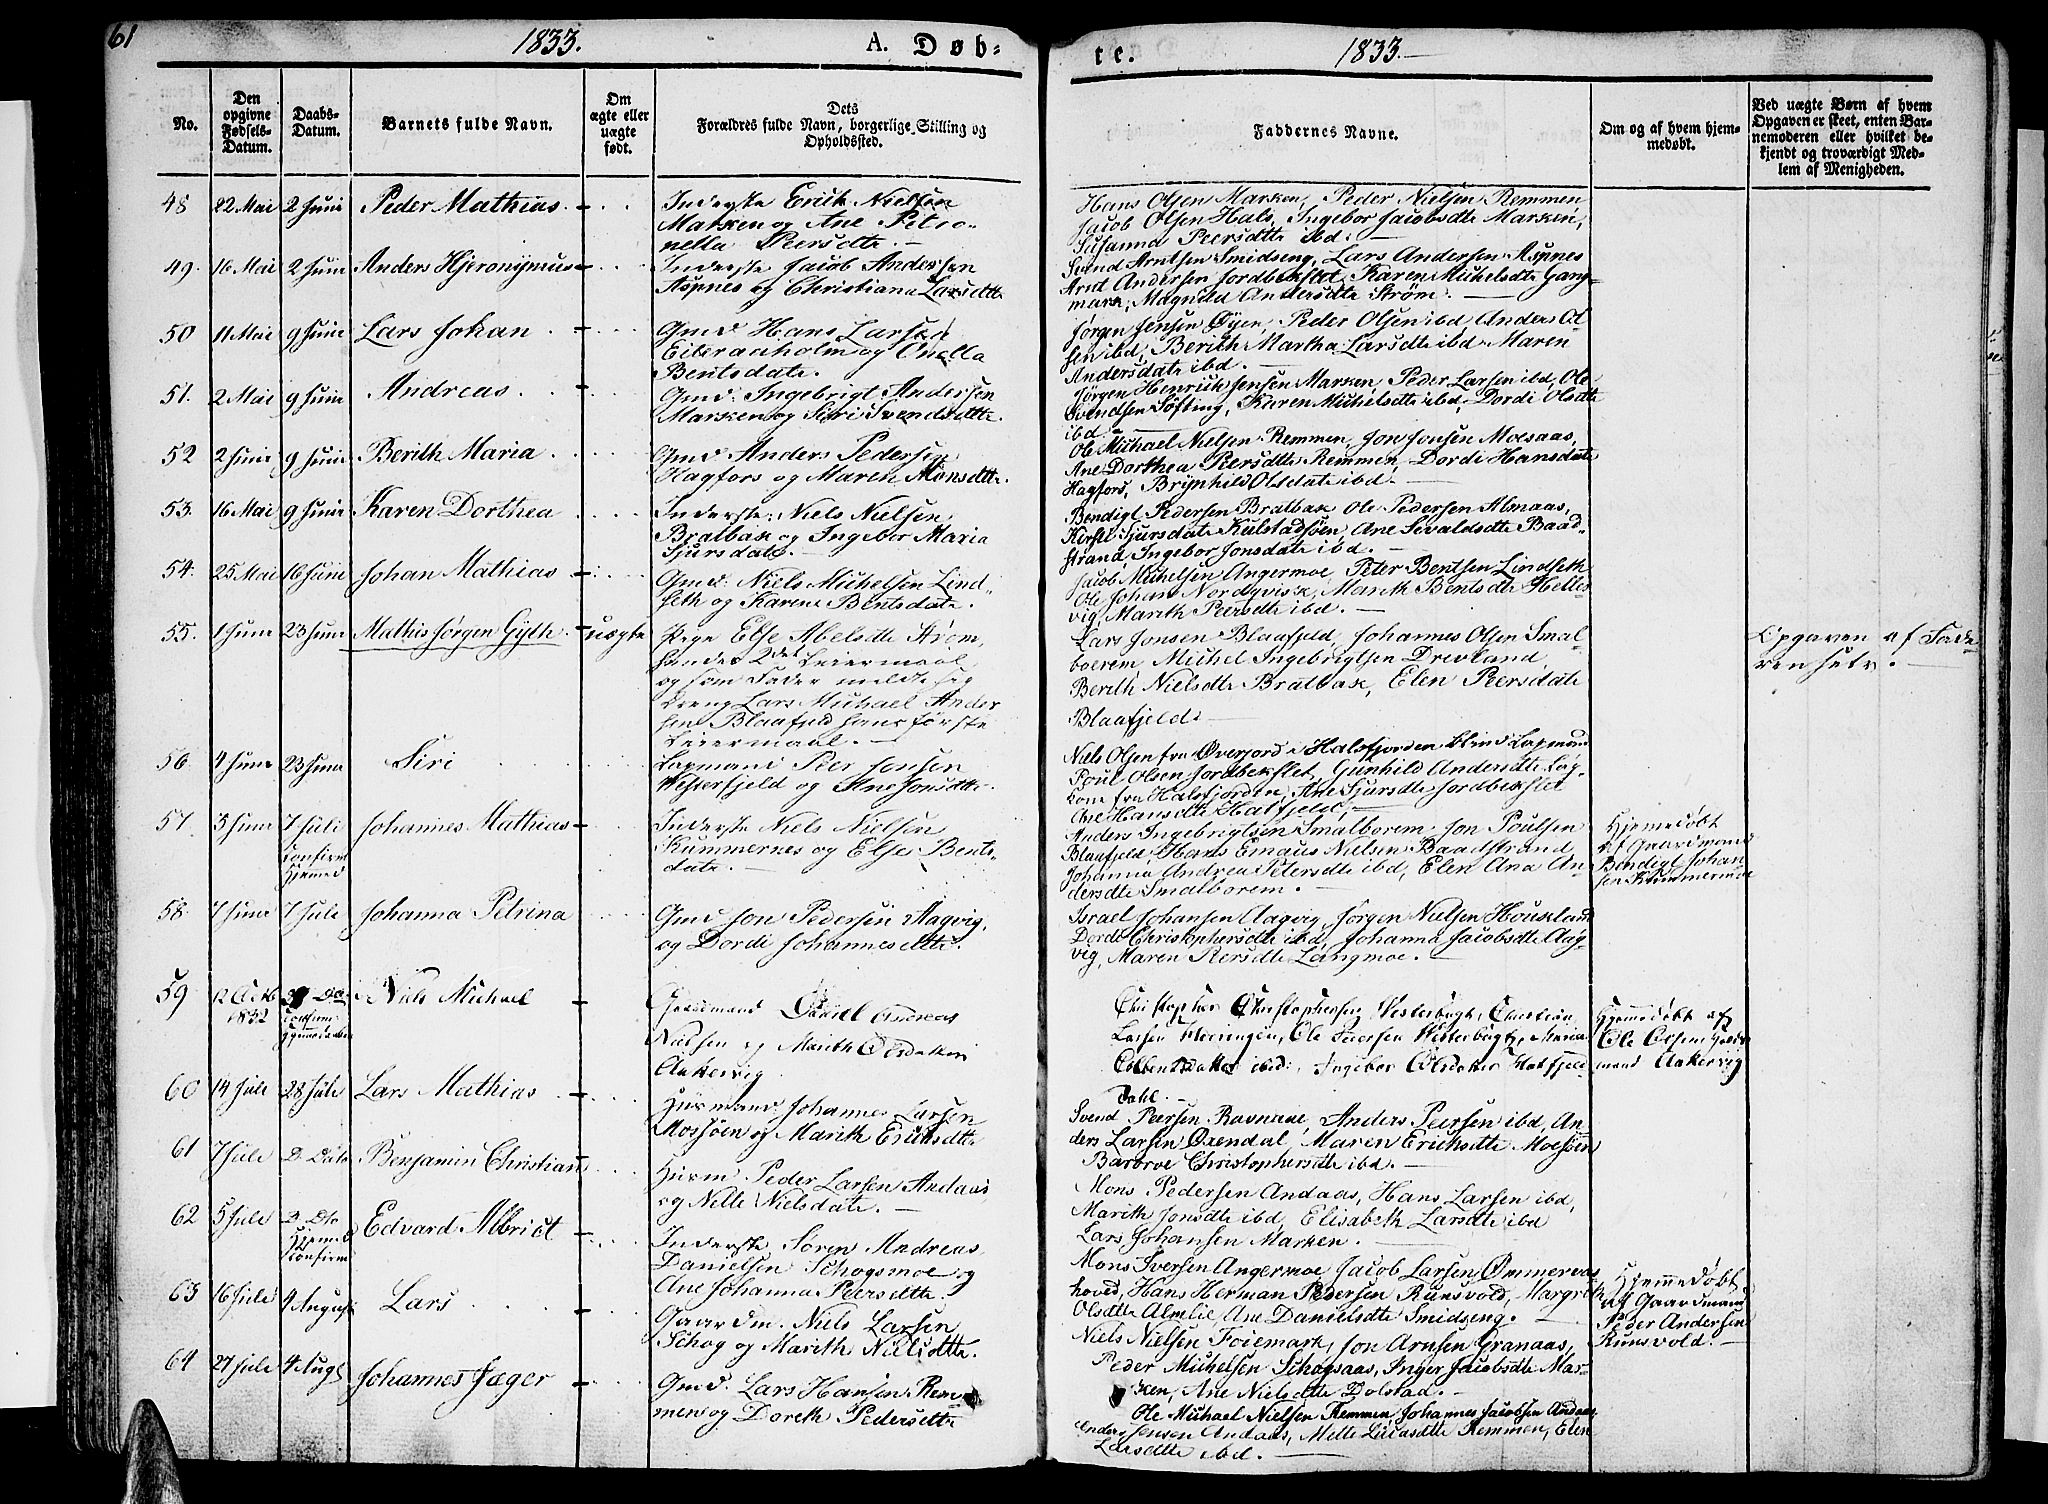 61
1833.
A. Døb-
te.
1833.
No.
Den opgivne Fødsels-Datum.
Daabs-Datum.
Barnets fulde Navn.
Om ægte eller uægte født.
Dets Forældres fulde Navn, borgerlige Stilling og Opholdssted.
Faddernes Navne.
Om og af hvem hjemmedøbt.
Ved uægte Børn af hvem Opgaven er skeet, enten Barnemoderen eller hvilket bekjendt og troværdigt Medlem af Menigheden.
48 22 Mai 2 Juni Peder Mathias
Inderste Erick Nielsen
Marken og Ane Petro-
nella Peersdtr.
Hans Olsen Marken, Peder Nielsen Remmen
Jacob Olsen Hals, Ingebor Jacobsdt Marken,
Susanna Peersdtte ibd.
49. 16 Mai 2 Juni Anders Hjeronijmus
Inderste Jacob Andersen
Aspnes og Christiana Larsdtte
Svend Arntsen Smidseng, Lars Andersen Aspnes
Arnt Andersen Jordbekslet, Karen Michelsdt Gang-
mark, Magnild Andersdte Strøm.
50 11 Mai 9 Juni Lars Johan
Gmd Hans Larsen
Eiteraaholm og Onella
Bentsdatr.
Jørgen Jensen Øyen, Peder Olsen ibd, Anders Ol-
sen ibd, Berith Martha Larsdte ibd, Maren
Andersdatr ibd.
51. 2 Mai 9 Juni Andreas
Gmd. Ingebrigt Andersen
Marken og Siri Svendsdtte
Jørgen Henrick Jensen Marken, Peder Larsen ibd, Ole
Svendsen Søfting, Karen Michelsdtte ibd, Dordi Olsdtte
ibd.
52 2 Juni 9 Juni Berith Maria
Gmd Anders Pedersen
Hagfors og Maren Monsdtte.
Ole Michael Nielsen Remmen, Jon Jonsen Moesaas,
Ane Dorthea Peersdtte Remmen, Dordi Hansdatte
Hagfors, Brynhild Olsdate ibd.
53. 16 Mai 9 Juni Karen Dorthea
Inderste Niels Nielsen
Bratbak og Ingebor Maria
Sjursdatr.
Bendigt Pedersen Bratbak Ole Pedersen Almaas,
Kirsti Sjursdatr Kulstadsjøen, Ane Sivaldsdte Baad-
strand, Ingebor Jonsdate ibd.
54. 25 Mai 16 Juni Johan Mathias
Gmd. Niels Michelsen Lind-
seth og Karen Bentsdate.
Jacob Michelsen Angermoe, Peter Bentsen Lindseth
Ole Johan Nordqvist, Marith Bentsdt Helles-
vig, Marith Peersdte ibd.
55. 1 Juni 23 Juni Mathis Jørgen Gyth. uægte
Pige Else Abelsdt Strøm,
hendes 2det Leiermaal,
og som Fader meldte sig
Dreng Lars Michael Ander
sen Blaafjeld hans første
Leiermaal.
Lars Jonsen Blaafjeld, Johannes Olsen Smal-
boerem, Michel Ingebrigtsen Drevland,
Berith Nielsdte Bratbak, Elen Peersdate
Blaafjeld.
Opgaven af Fade-
ren selv.
56. 4 Juni 23 Juni Siri
Lapmand Peer Jonsen
Vesterfjeld og Ane Jonsdtte.
Niels Olsen fra Øverjord i Halsfjorden blind Lapmand
Poul Olsen Jordbekslet, Gunhild Andersdte Lap-
kone fra Halsfjorden, Ane Sjursdte Jordbekslet
Ane Hansdtte Hatfjeld.
57. 3 Juni 7 Juli Johannes Mathias
confirm
Hjemed
Inderste Niels Nielsen
Kummernes og Else Bents-
datr.
Anders Ingebrigtsen Smalborem, Jon Poulsen
Blaafjeld Hans Emaus Nielsen Baadstrand
Johanna Andrea Petersdtte ibd, Elen Ana An-
dersdtte Smalborem.
Hjemedøbt
af Gaardmand
Bendigt Johan-
sen Kummermoe
58. 7 Juni 7 Juli Johanna Petrina
Gmd Jon Pedersen Aagvig,
og Dordi Johannesdtte.
Israel Johansen Aagvig, Jørgen Nielsen Houkland
Dordi Christophersdtte ibd, Johanna Jacobsdte Aag-
vig, Maren Peersdte Langmoe.
59 12 Octb 1832 Niels Michael
Gaardmand Daniel Andreas
Nielsen og Marith Olsdatter
Aakervig
Christopher Christophersen Vesterbugt, Christian
Larsen Herringen, Ole Iversen Westerbugt, Maria
datter ibid: Ingebor Olsdatter Hatfjeld-
dahl.
Hjemmedøbt af
Ole Olsen
mand Aakervig
60 14 Juli 28 Juli Lars Mathias
Huusmand Johannes Larsen
Mossøen og Marith Ericksdtte
Svend Peersen Ravnaae, Anders Peersen ibd, An-
ders Larsen Øxendal, Maren Ericksdtte Moessøen
Barbroe Christophersdtte ibd.
61 7 Juli D Dato Benjamin Christian
Huusm Peder Larsen Andaas
og Nille Nielsdate.
Mons Pedersen Andaas, Hans Larsen ibd,
Marith Jonsdte ibd, Elisabeth Larsdte ibd
Lars Johansen Marken.
62 5 Juli D Dto Edvard Albrict
Hjemed
Confirm
Inderste Søren Andreas
Danielsen Schogsmoe og
Ane Johanna Peersdtte.
Mons Iversen Angermoe, Jacob Larsen Ømmervas
hoved, Hans Herman Pedersen Runsvold, Margrith
Olsdtte Almlie, Ane Danielsdtte Smidseng.
Hjemmedøbt
af Gaardmand
Peder Andersen
Runsvold.
63 16 Juli 4 August Lars
Gaardm. Niels Larsen
Schog og Marith Nielsdtte.
Niels Nielsen Foiemark, Jon Arnsen Granaas,
Peder Michelsen Schogsaas, Inger Jacobsdte Mar-
ken, Ane Nielsdtte Dolstad.
64 27 Juli 4 Augt Johannes Jæger
Gmd. Lars Hansen Rem-
men og Doreth Pedersdtte
Ole Michael Nielsen Remmen, Johannes Jacobsen Andaas
Anders Jensen Andaas, Mette Lucasdtte Remmen, Elen
Larsdtte ibd.